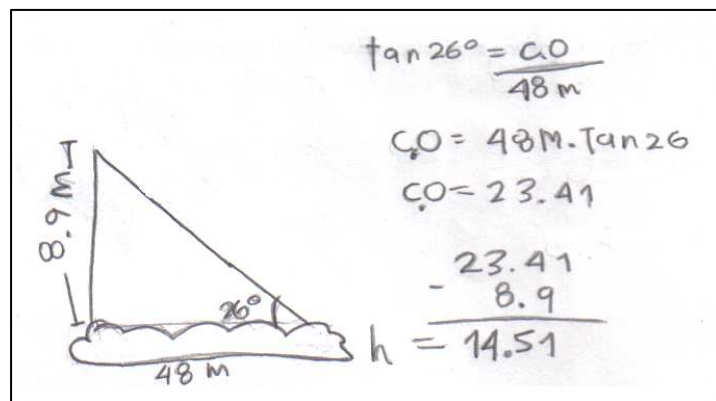 tan 26° = C.O
48 m
C.O = 48M. Tan 26
C.O = 23.41
23.41
- 8.9
h = 14.51
8.9 m
26°
48 m